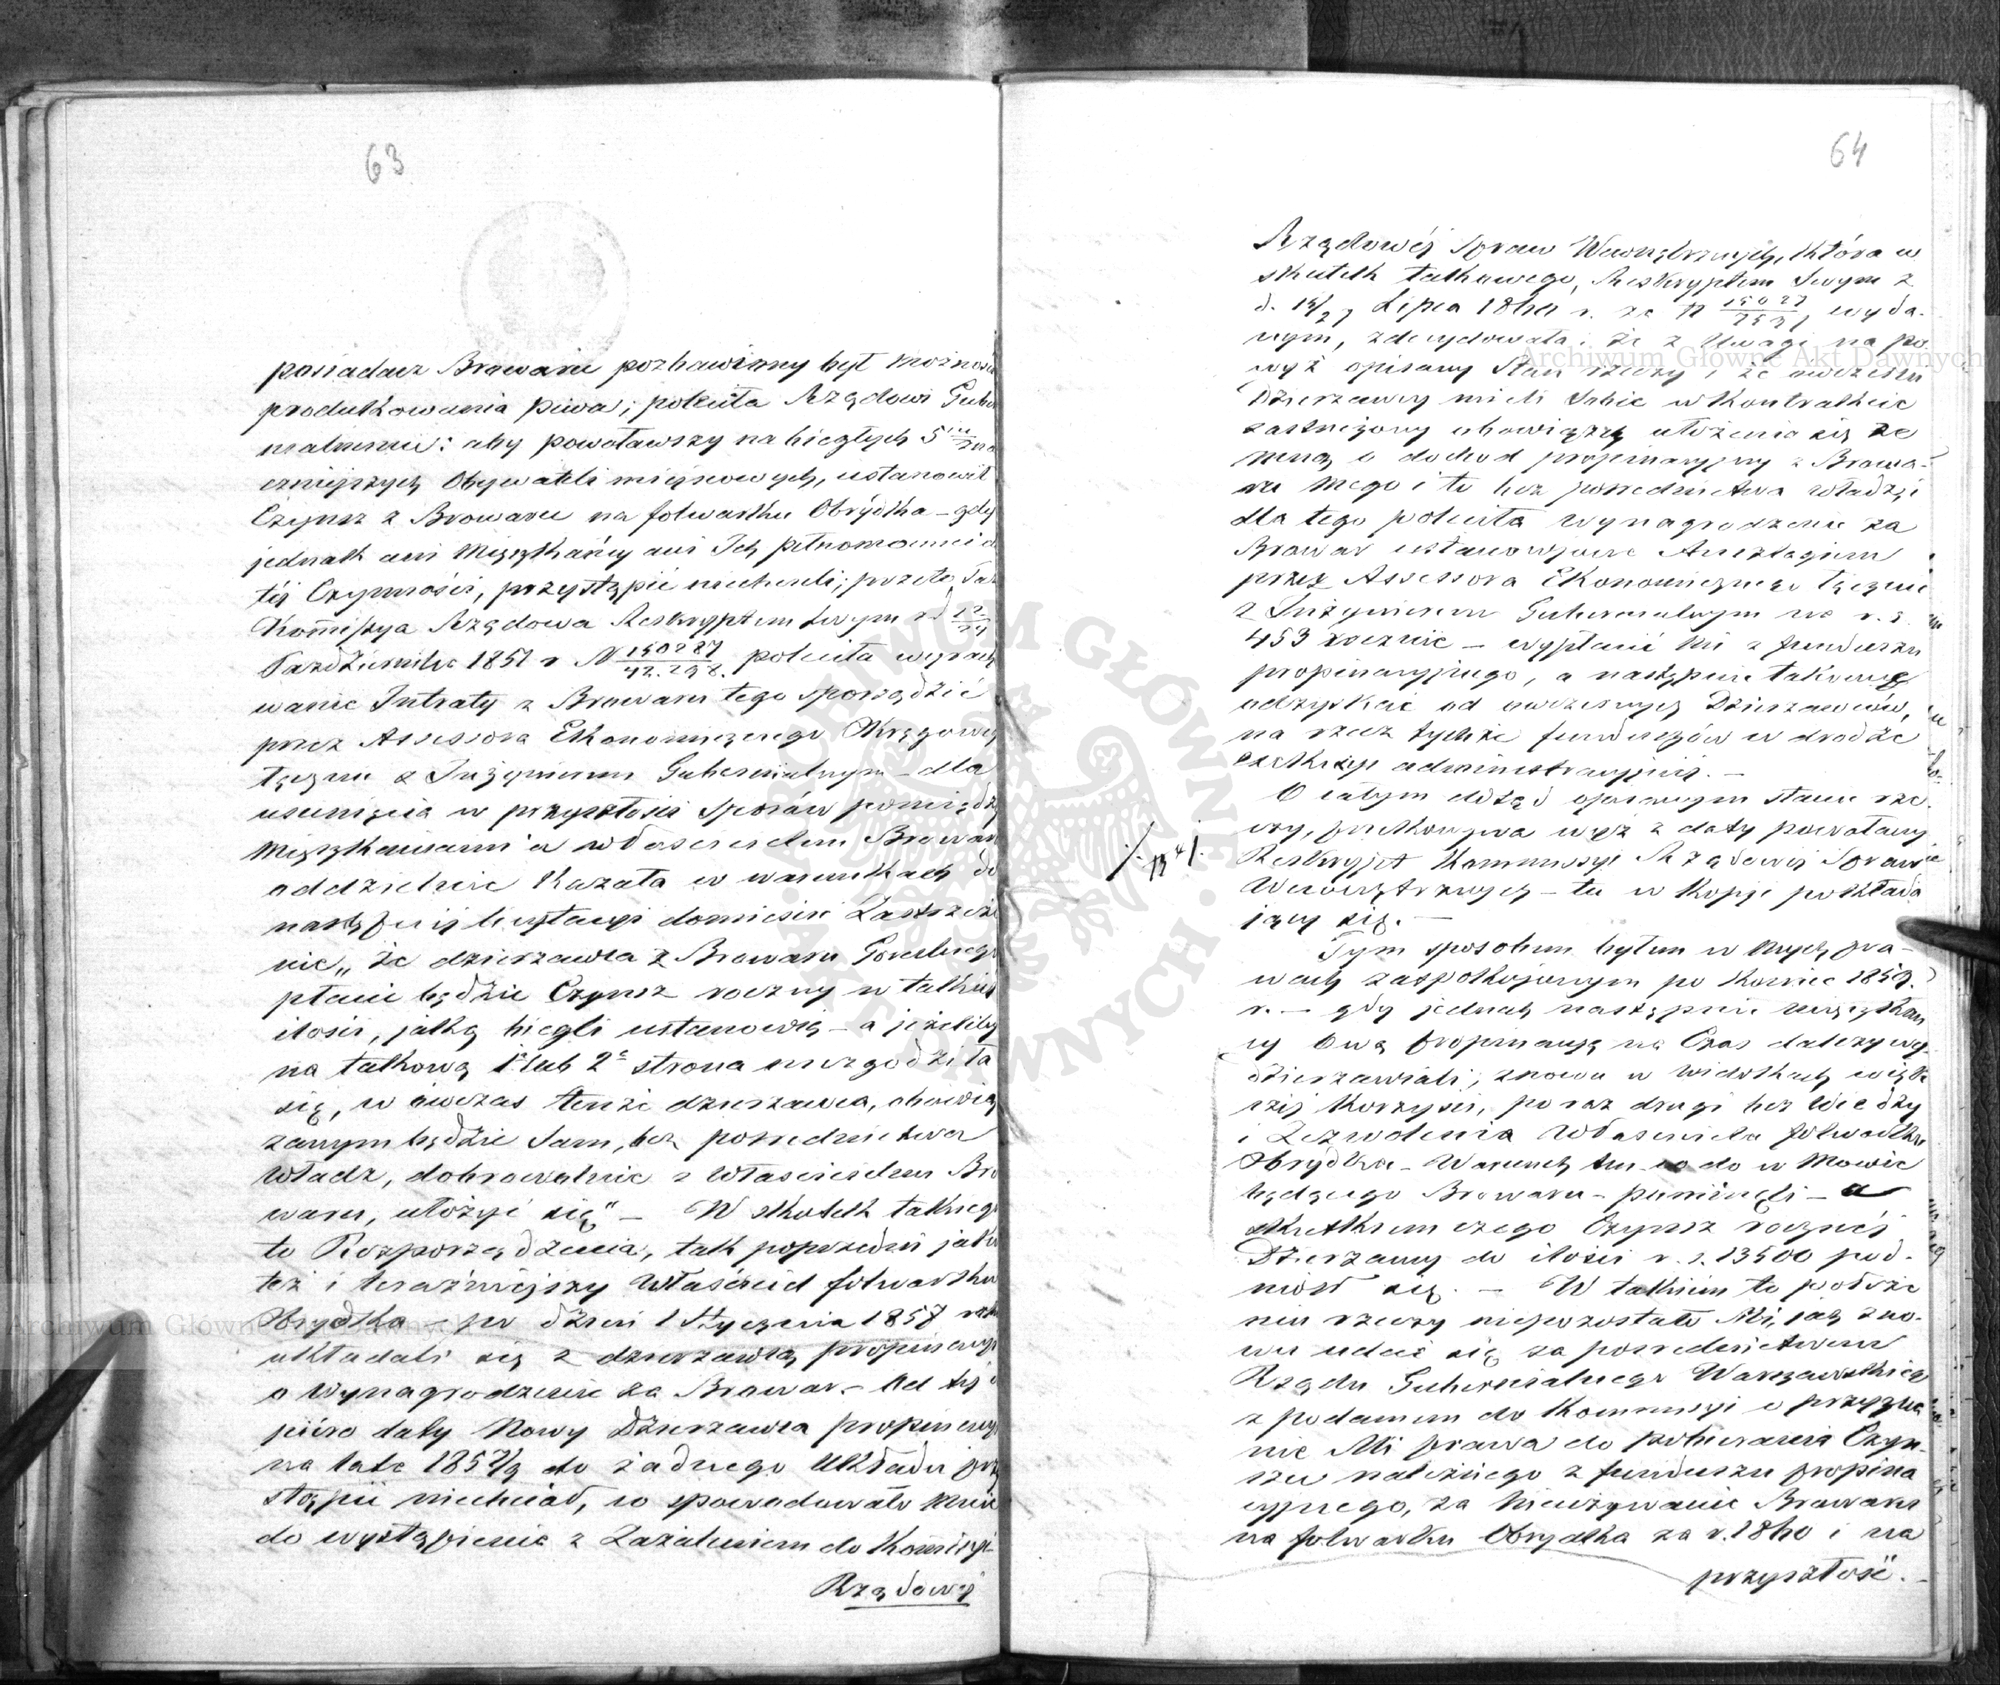 63
posiadacz Browaru pozbawionny był możności
produkowania piwa; poleciła Rządowi Guber
nialnemu: aby powoławszy na biegłych 5
czniejszych Obywateli miejscowych, ustanowił
Czynsz z Browaru na folwarku Obrydka – gdy
jednak ani Mieszkańcy ani Ich pełnomocnicy do
téj Czynności, przystąpić niechcieli; przeto Taż
Kommissya Rządowa Reskryptem swym z d 12/24
Października 1851 r N 150287/42.298. poleciła wyracho
wanie Intraty z Browaru tego sporządzić
przez Assessora Ekonomicznego Okręgowego
łącznie z Inżynierem Gubernialnym – dla
usunięcia w przyszłości sporów pomiędzy
Mieszkańcami a właścicielem Browaru
oddzielnie kazała w warunkach do
następnéj licytacyi domieścić Zastrzeże
nie „że dzierzawca z Browaru Goreckiego
płacić będzie Czynsz roczny w takiéj
ilości, jaką biegli ustanowią – a jeżeliby
na takową 1a lub 2a strona niezgodziła
się, w ówczas tenże dzierzawca, obowią
zanym będzie sam, bez posrednictwa
Władz, dobrowolnie z Właścicielem Bro
waru, ułożyć się" – W skutek takiego
to Rozporządzenia, tak poprzedni jako
też i teraźniejszy Właściciel folwarku
Obrydka – po dzień 1 Stycznia 1858 roku
układali się z dzierzawcą propinacyi
o wynagrodzenie za Browar. – Od téj
pióro daty Nowy Dzierzawca propinacyi
na lata 1857/9 do żadnego Układu przy
stąpić niechciał, co spowodowało mnie
do wystąpienia z Zażaleniem do Kommissyi
Rządowéj
64
Rządowéj Spraw Wewnętrznych, która w
skutek takowego, Reskryptem Swym z
d. 15/27 Lipca 1860 r. za N 15027/2531 wyda-
nym, zdecydowała: że z Uwagi na po
wyż opisany Stan rzeczy i że ówcześni
Dzierzawcy mieli Sobie w Kontrakcie
zastrzeżony obowiązek ułożenia się ze
mną o dochód propinacyjny z Browa-
ru mego i to bez posrednictwa władzy;
dla tego poleciła wynagrodzenie za
Browar ustanowione Anszlagiem
przez Assessora Ekonomicznego łącznie
z Inżynierem Gubernialnym na r. s.
453 rocznie – wypłacić mi z funduszu
propinacyjnego, a następnie takowe
odzyskać od ówczesnych Dzierzawców,
na rzecz tychże funduszów w drodze
exekucyi administracyjnéj. –
O całym dotąd opisanym stanie rze
czy, przekonywa wyż z daty powołany
Reskrypt Kommissyi Rządowéj Spraw
Wewnętrznych – tu w Kopji pokłada
jący się. –
Tym sposobem byłem w mych pra-
wach zaspokojonym po koniec 1859.
r. – gdy jednak następnie mieszkań
cy Ową propinacyą na Czas dalszy wy-
dzierzawiali, znowu w widokach więk
széj korzyści, po raz drugi bez wiedzy
i Zezwolenia Właściciela folwarku
Obrydka – Warunek ten co do w Mowie
będącego Browaru – pominęli – a
skutkiem czego Czynsz rocznéj
Dzierzawy do ilości r. s. 13500 pod-
niósł się. – W takiem to położe
niu rzeczy niepozostało Mi, jak zno-
wu udać się za posrednictwem
Rządu Gubernialnego Warszawskiego
z podaniem do Kommissyi o przyzna
nie Mi prawa do pobierania Czyn-
szu należnego z funduszu propina
cyjnego, za nieużywanie Browaru
na folwarku Obrydka za r. 1860 i na
przyszłość. –
Archiwum Główne Akt Dawnych
Archiwum Główne Akt Dawnych
ARCHIWUM GŁÓWNE AKT DAWNYCH